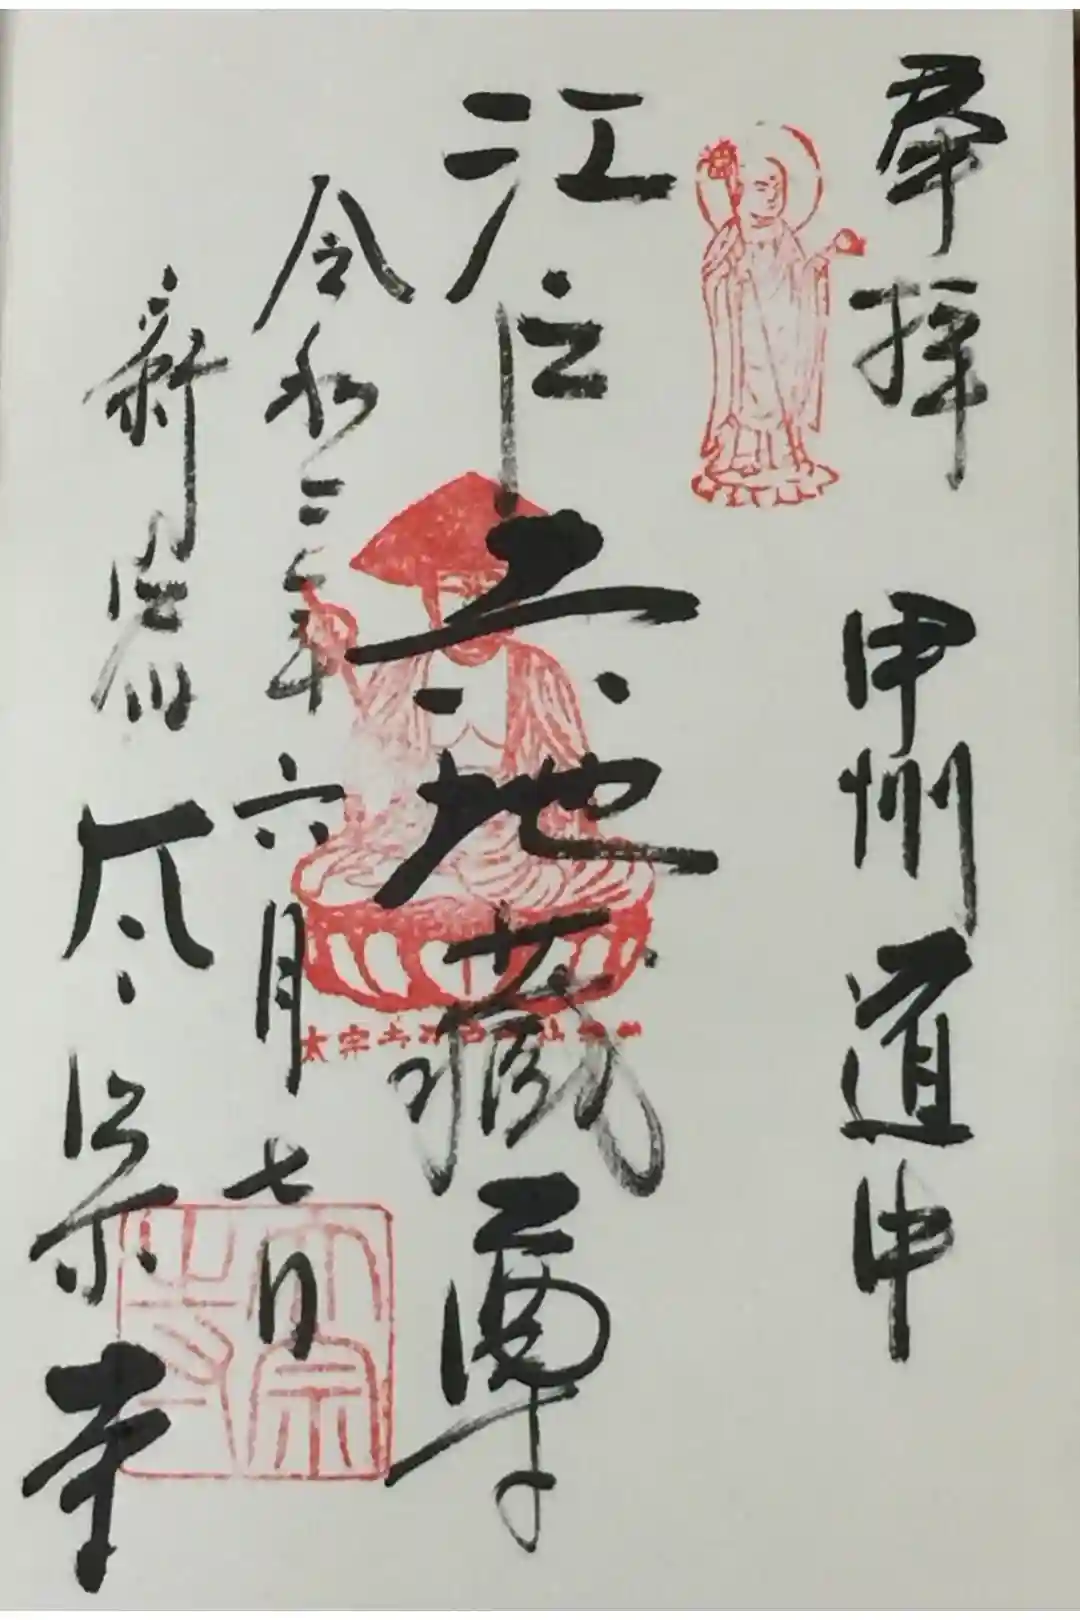 奉拝　甲州道中
江戸六地蔵尊
令和三年六月七日
新宿
宗寺
太宗寺